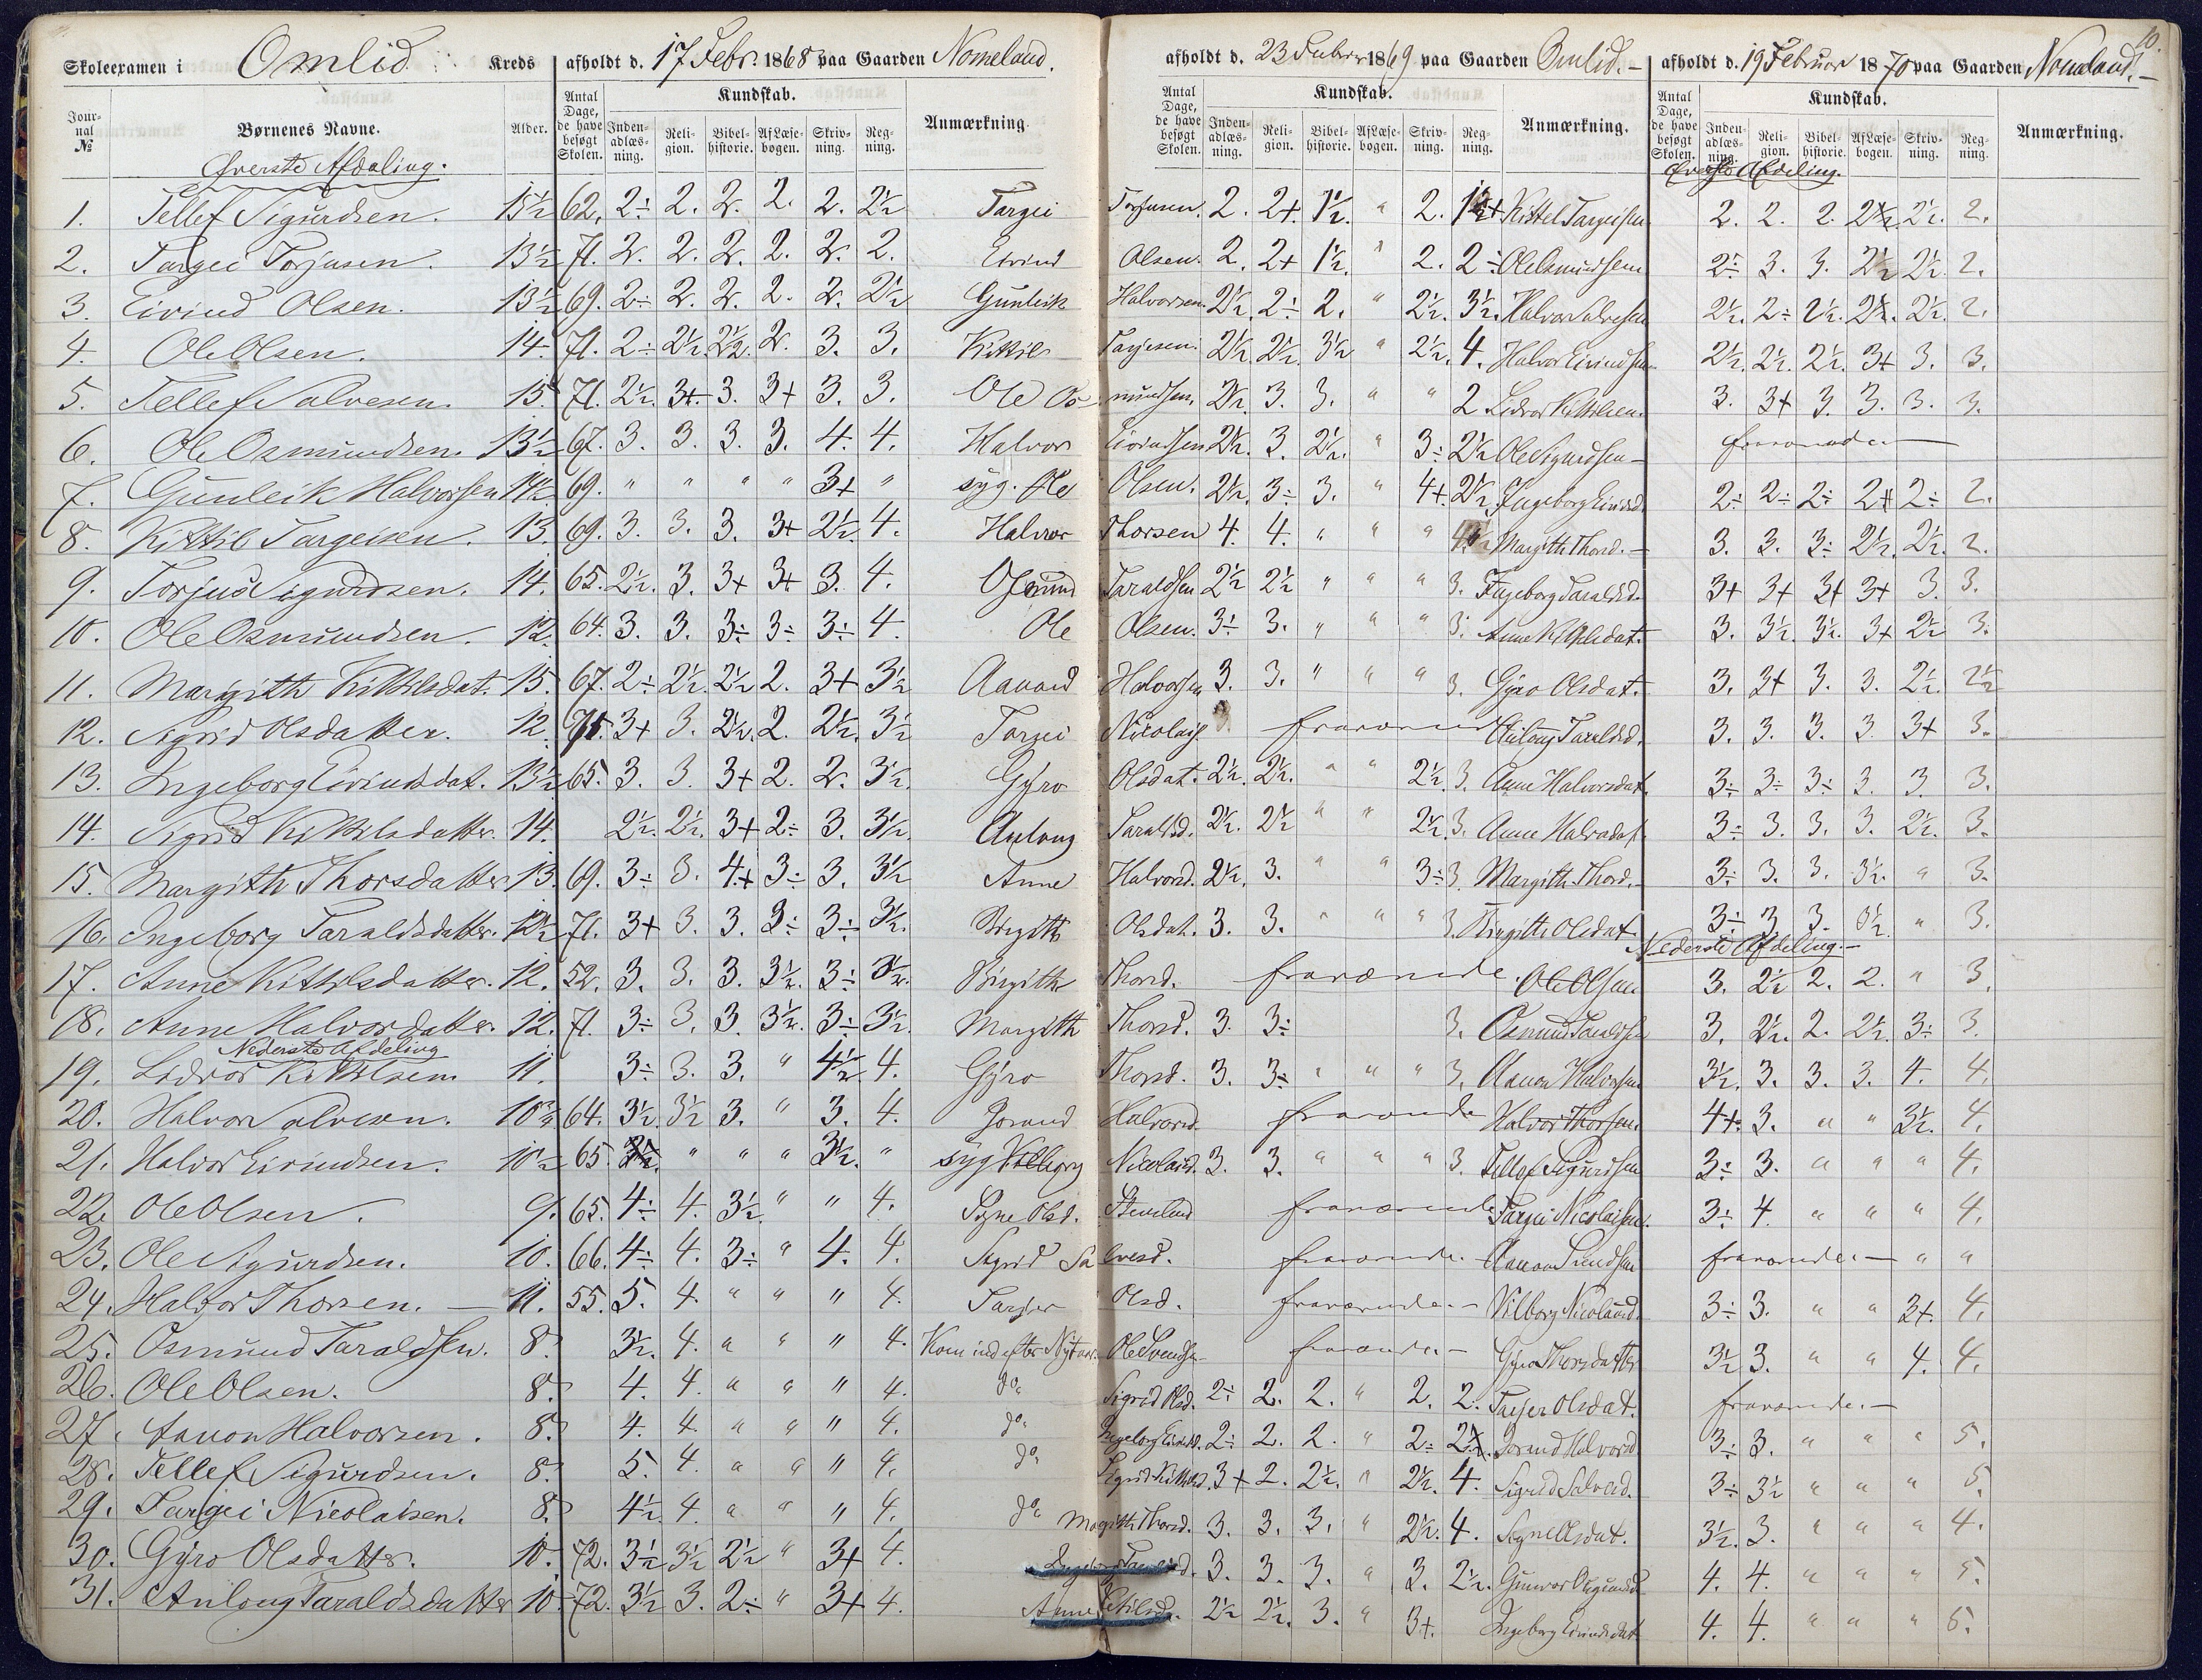 Skoleexamen i Omlid Kreds afholdt d. 17 Febr. 1868 paa Gaarden Nomeland.
Jour-nal № Børnenes Navne. Alder. Antal Dage, de have besøgt Skolen. Kundskab. Inden-adlæs-ning. Reli-gion. Bibel-historie. Af Læse-bogen. Skriv-ning. Reg-ning. Anmærkning.
Øverste Afdeling.
1. Tellef Sigurdsen. 13½ 62. 2÷ 2. 2. 2. 2. 2½
2. Targei Torjusen. 13½ 71. 2. 2. 2. 2. 2. 2.
3. Eivind Olsen. 13½ 69. 2÷ 2. 2. 2. 2. 2½
4. Ole Olsen. 14. 71. 2÷ 2½. 2½. 2. 3. 3.
5. Tellef Salvesen. 15. 71. 2½. 3+ 3. 3+ 3. 3.
6. Ole Osmundsen. 13½ 67. 3. 3. 3. 3. 4. 4.
7. Gunleik Halvorsen 14½ 69. " " " " 3+ " syg.
8. Kittil Targeisen. 13. 69. 3. 3. 3. 3+ 2½. 4.
9. Torjus Sigurdsen. 14. 65. 2½. 3. 3+ 3+ 3. 4.
10. Ole Osmundsen. 12. 64. 3. 3. 3÷ 3÷ 3÷ 4.
11. Margith Kittilsdat. 15. 67. 2÷ 2½. 2½ 2. 3+ 3½
12. Sigrid Olsdatter. 12. 71. 3+ 3. 2½. 2. 2½. 3½
13. Ingeborg Eivindsdat. 13½ 65. 3. 3 3+ 2. 2. 3½.
14. Sigrid Kittilsdatter. 14. 2½. 2½. 3+ 2÷ 3. 3½.
15. Margith Thorsdatter 13. 69. 3÷ 3. 4+ 3÷ 3. 3½
16. Ingeborg Taraldsdatter. 12½ 71. 3+ 3. 3. 3÷ 3÷ 3½.
17. Anne Kittilsdatter. 12. 52. 3. 3. 3. 3½. 3÷ 3½.
18. Anne Halvorsdatter. 12. 71. 3÷ 3. 3. 3½. 3÷ 3½.
Nederste Afdeling
19. Lidvor Kittilsen 11. 3÷ 3. 3. " 4½. 4.
20. Halvor Salvesen. 64. 3½. 3½ 3. " 3. 4.
21. Halvor Eivindsen. 10½ 65. " " " 3½. " syg
22. Ole Olsen. 9. 65. 4÷ 4. 3½. " " 4.
23. Ole Sigurdsen. 10. 66. 4÷ 4. 3÷ " 4. 4.
24. Halvor Thorsen. — 11. 55. 5. 4. " " " 4.
25. Osmund Taraldsen. 8. 3½. 4. " " " 4. Kom ind efter Nytaar.
26. Ole Olsen. 8. 4. 4. " " " 4. do.
27. Aanon Halvorsen. 8. 4. 4. " " " 4. do.
28. Tellef Sigurdsen. 8. 5. 4. " " " 4. do.
29. Targei Nicolaisen. 8. 4½. 4. " " " 4. do.
30. Gyro Olsdatter. 10. 72. 3½ 3½ 2½ " 3+ 4.
31. Anlaug Taraldsdatter 10. 72. 3½ 3. 2÷ " 3+ 4.
afholdt d. 23 Februar 1869 paa Gaarden Omlid.—
Antal Dage, de have besøgt Skolen. Kundskab. Inden-adlæs-ning. Reli-gion. Bibel-historie. Af Læse-bogen. Skriv-ning. Reg-ning. Anmærkning.
Targei Torjusen. 2. 2+ 1½. " 2.
Eivind Olsen. 2. 2+ 1½. " 2. 2÷
Gunleik Halvorsen. 2½. 2÷ 2. " 2½. 3½.
Kittil Targesen. 2½. 2½. 3½ " 2½. 4.
Ole Osmundsen. 2½. 3. 3. " " 2
Halvor Eivindsen 2½. 3. 2½. " 3÷ 2½
Ole Olsen. 2½. 3÷ 3. " 4+ 2½.
Halvor Thorsen 4. 4. " " "
Osmund Taraldsen 2½ 2½ " " " 3.
Ole Olsen. 3÷ 3. " " " 3.
Aanond Halvorsen 3. 3. " " " 3.
Targei Nicolais. fraværende
Gyro Olsdat. 2½. 2½. " " 2½. 3.
Anlaug Taraldsd. 2½. 2½ " " 2½. 3.
Anne Halvorsd. 2½. 3. " " 3÷ 3.
Birgith Olsdat. 3. 3. " " " 3.
Birgith Thorsd. fraværende.
Margith Thorsd. 3. 3÷ 3.
Gyro Thorsd. 3. 3÷ " " " 3.
Jorand Halvorsd. fraværende
Vilborg Nicolaisd. 3. 3. " " " 3.
Signe Olsd. fraværende
Sigrid Salvesd. fraværende.—
Targjer Olsd. fraværende.—
Ole Svends. fraværende.—
Sigrid Olsd. 2÷ 2. 2. " 2. 2.
Ingeborg Eivindsd. 2÷ 2. 2. " 2÷
Sigrid Kittilsd. 3+ 2. 2½. " 2½. 4.
Margith Thorsd. 3. 3. 3. " 2½. 4.
3. 3. 3. " 3. 2½.
Anne 2½ 2½. 3. " 3+.
afholdt d. 19 Februar 1870 paa Gaarden Nomeland.—
10.
Antal Dage, de have besøgt Skolen. Kundskab. Inden-adlæs-ning. Reli-gion. Bibel-historie. Af Læse-bogen. Skriv-ning. Reg-ning. Anmærkning.
Øverste Afdeling.
Kittel Targeisen 2. 2. 2. 2½. 2½. 2.
Ole Osmundsen 2÷ 3. 3. 2½ 2½. 2.
Halvor Salvesen 2½. 2÷ 2½. 2½. 2½. 2.
Halvor Eivindsen 2½. 2½. 2½. 3+ 3. 3.
Lidvor Kittilsen. 3. 3+ 3. 3. 3. 3.
Ole Sigurdsen— fraværende—
Ingeborg Eivindsd. 2÷ 2÷ 2÷ 2+ 2÷ 2.
Margith Thorsd.— 3. 3. 3÷ 2½. 2½. 2.
Ingeborg Taraldsd. 3+ 3+ 3+ 3+ 3. 3.
Anne K Olsdat. 3. 3½. 3½. 3+ 2½ 3.
Gyro Olsdat. 3. 3+ 3. 3. 2½. 2½
Anlaug Taraldsd. 3. 3. 3. 3 3+ 3.
Anne Halvorsdat. 3÷ 3÷ 3÷ 3. 3 3.
Anne Halvorsdat. 3÷ 3. 3. 3. 2½. 3.
Margith Thord.— 3÷ 3. 3. 3½. " 3.
Birgitte Olsdat. 3÷ 3 3. " 3.
Nederste Afdeling.—
Ole Olsen 3. 2½ 2. 2. " 3.
Osmund Taraldsen 3. 2½. 2. 2½. 3÷ 3.
Aanon Halvorsen 3½. 3. 3. 3. 4. 4.
Halvor Thorsen. 4+. 3. " " 3½. 4.
Tellef Sigurdsen 3÷ 3. " " " 4.
Targei Nicolaisen. 3÷ 4. " " " 4.
Aanon Svendsen fraværende.— " "
Vilborg Nicolaisd. 3÷ 3. " " 3+. 4.
Gyro Thorsdatter 3½ 3. " " 4. 4.
Targjer Olsdat. fraværende.—
Jorand Halvorsd 3÷ 3. " " " 5.
Sigrid Salvesd. 3÷ 3½ " " " 5.
Signe Olsdat. 3½. 3. " " " 4.
4. 4. " " " 5.
Ingeborg Eivindsdat 4. 4. " " " 5.